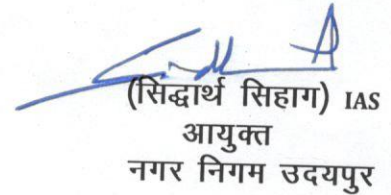 (सिद्धार्थ सिहाग) IAS
आयुक्त
नगर निगम उदयपुर